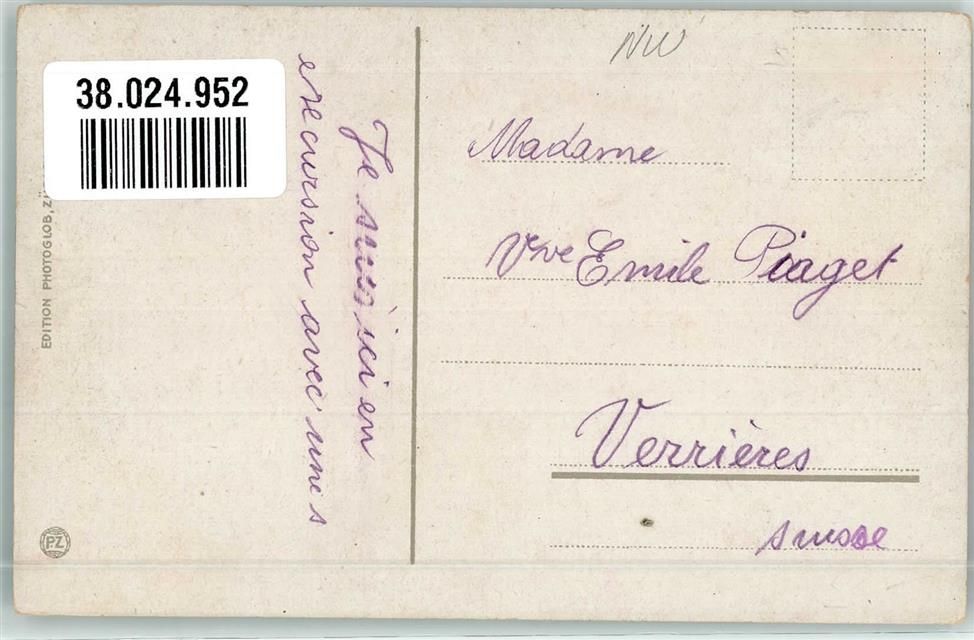 38.024.952
NW
Je suis ici en
excursion avec une
Madame
Vve Emile Piaget
Verrières
suisse
EDITION PHOTOGLOB, Z
PZ